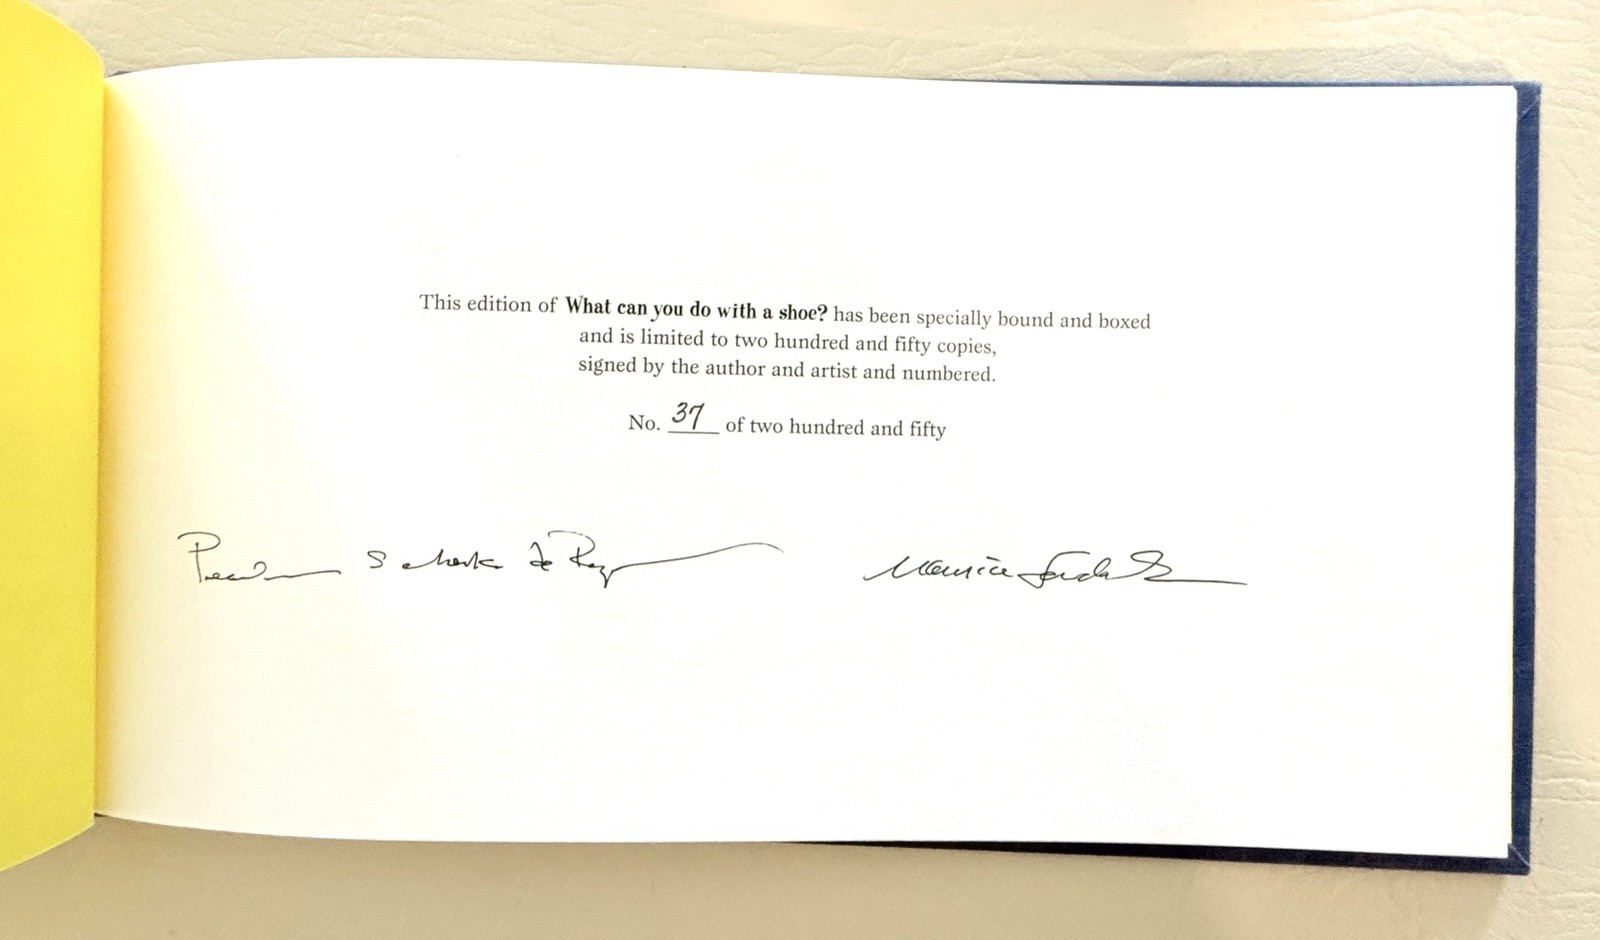 This edition of What can you do with a shoe? has been specially bound and boxed
and is limited to two hundred and fifty copies,
signed by the author and artist and numbered.
No. 37 of two hundred and fifty
Maurice Sendak